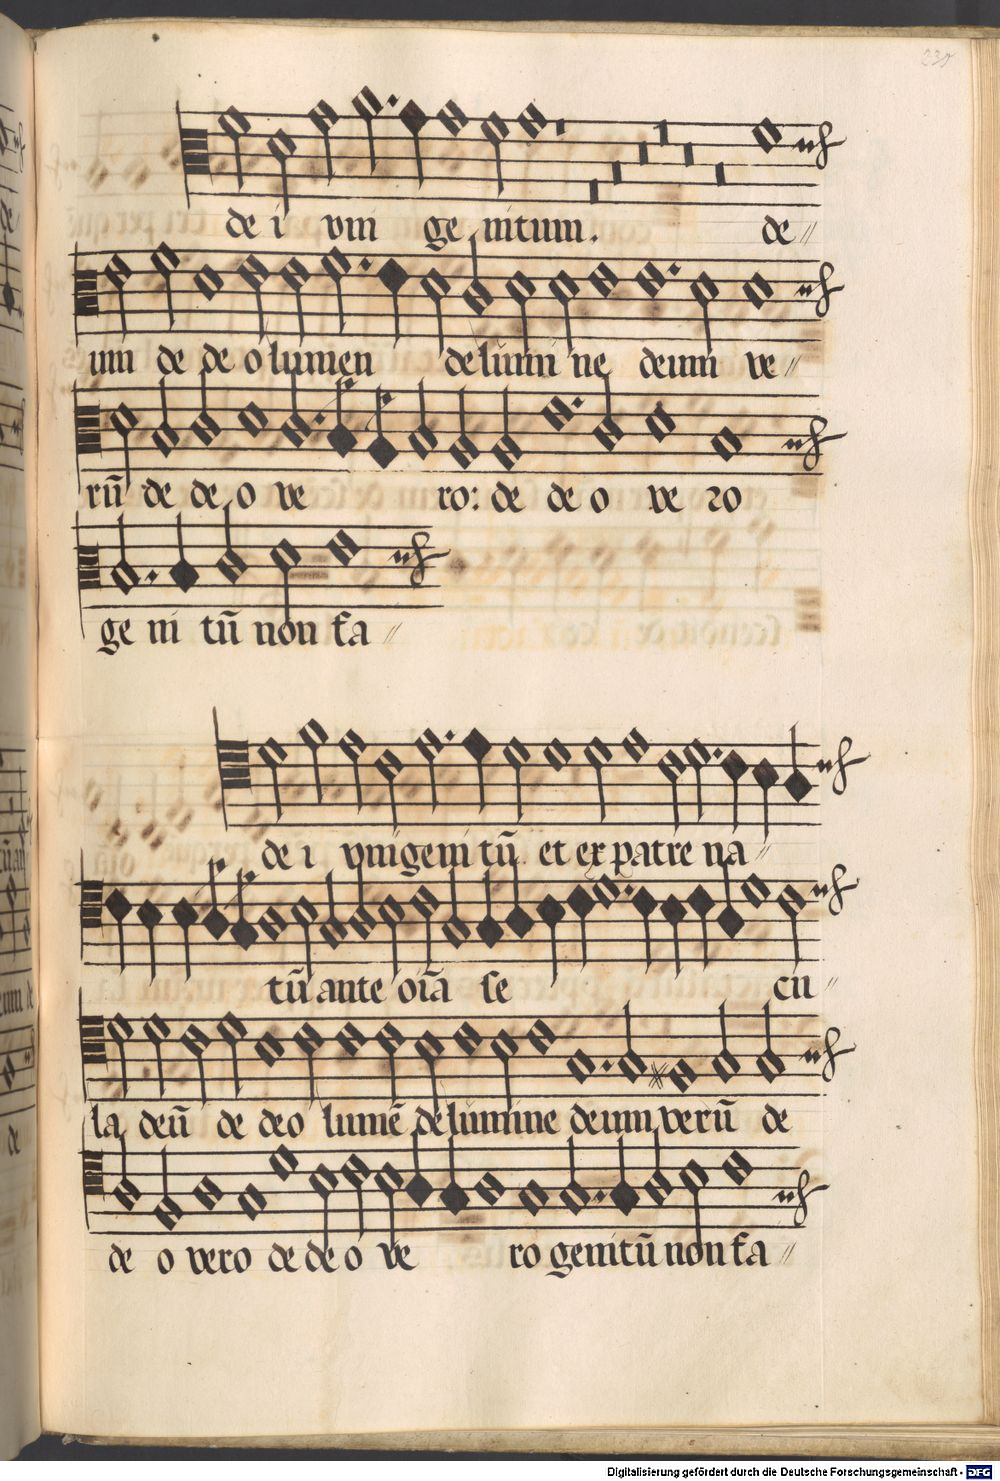 230
de i vni ge nitum. de
um de de o lumen de lumi ne deum ve
rū de de o ve ro: de de o ve ro
ge ni tū non fa
de i vnigeni tū et ex patre na
tū ante oīa se cu
la deū de deo lumē de lumine deum verū de
de o vero de de o ve ro genitū non fa
de
Digitalisierung gefördert durch die Deutsche Forschungsgemeinschaft - DFG